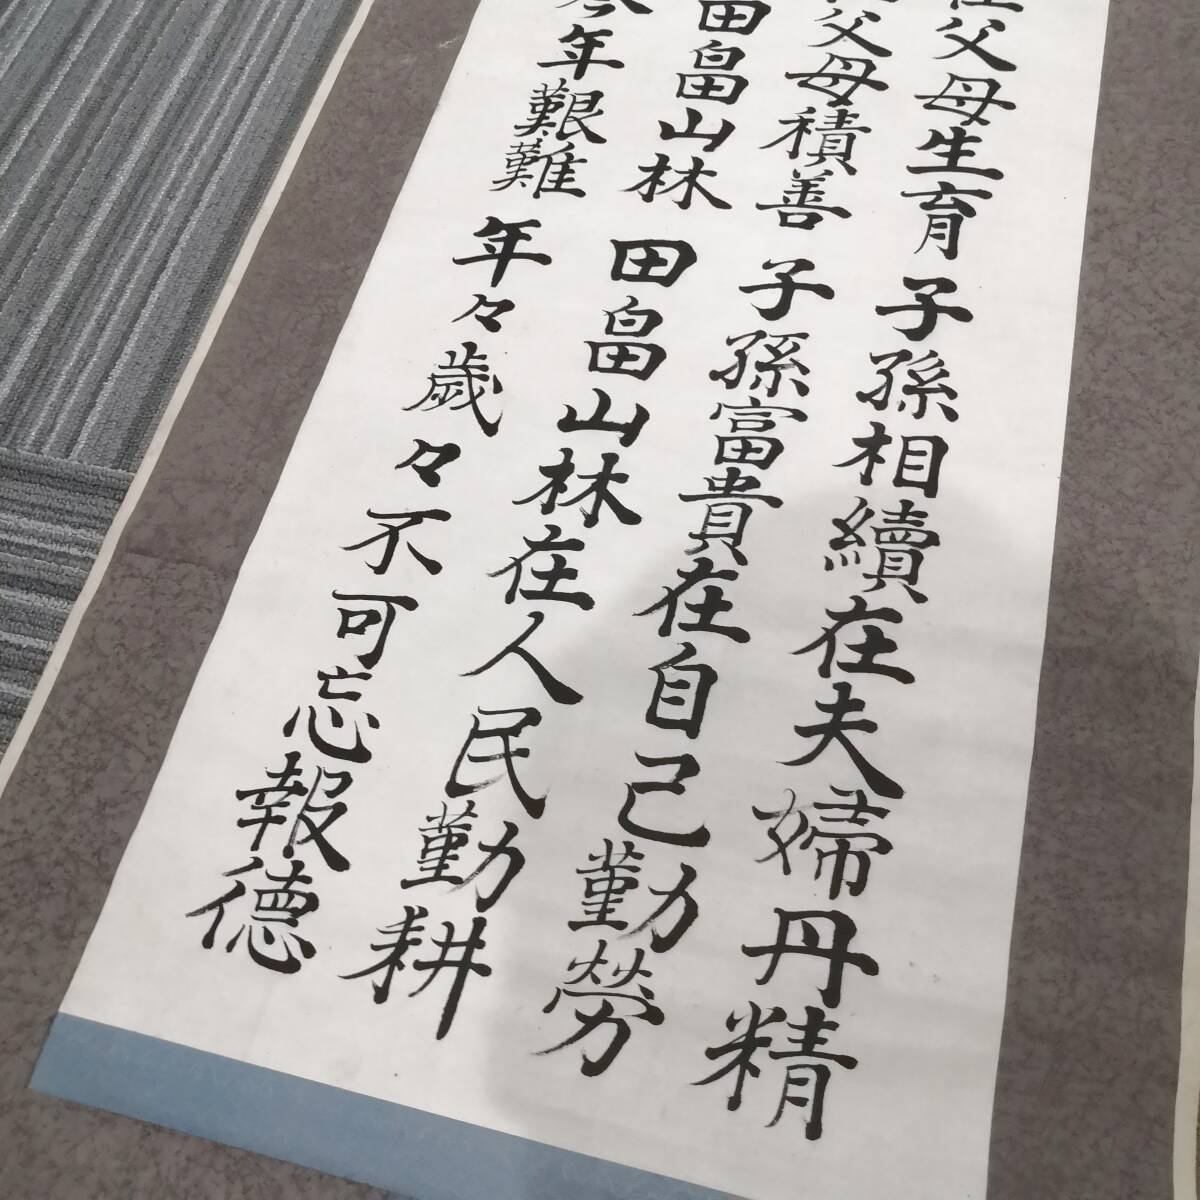 在父母生育 子孫相續在夫婦丹精
父母積善 子孫富貴在自己勤勞
田畠山林 田畠山林在人民勤耕
年艱難 年々歳々不可忘報德